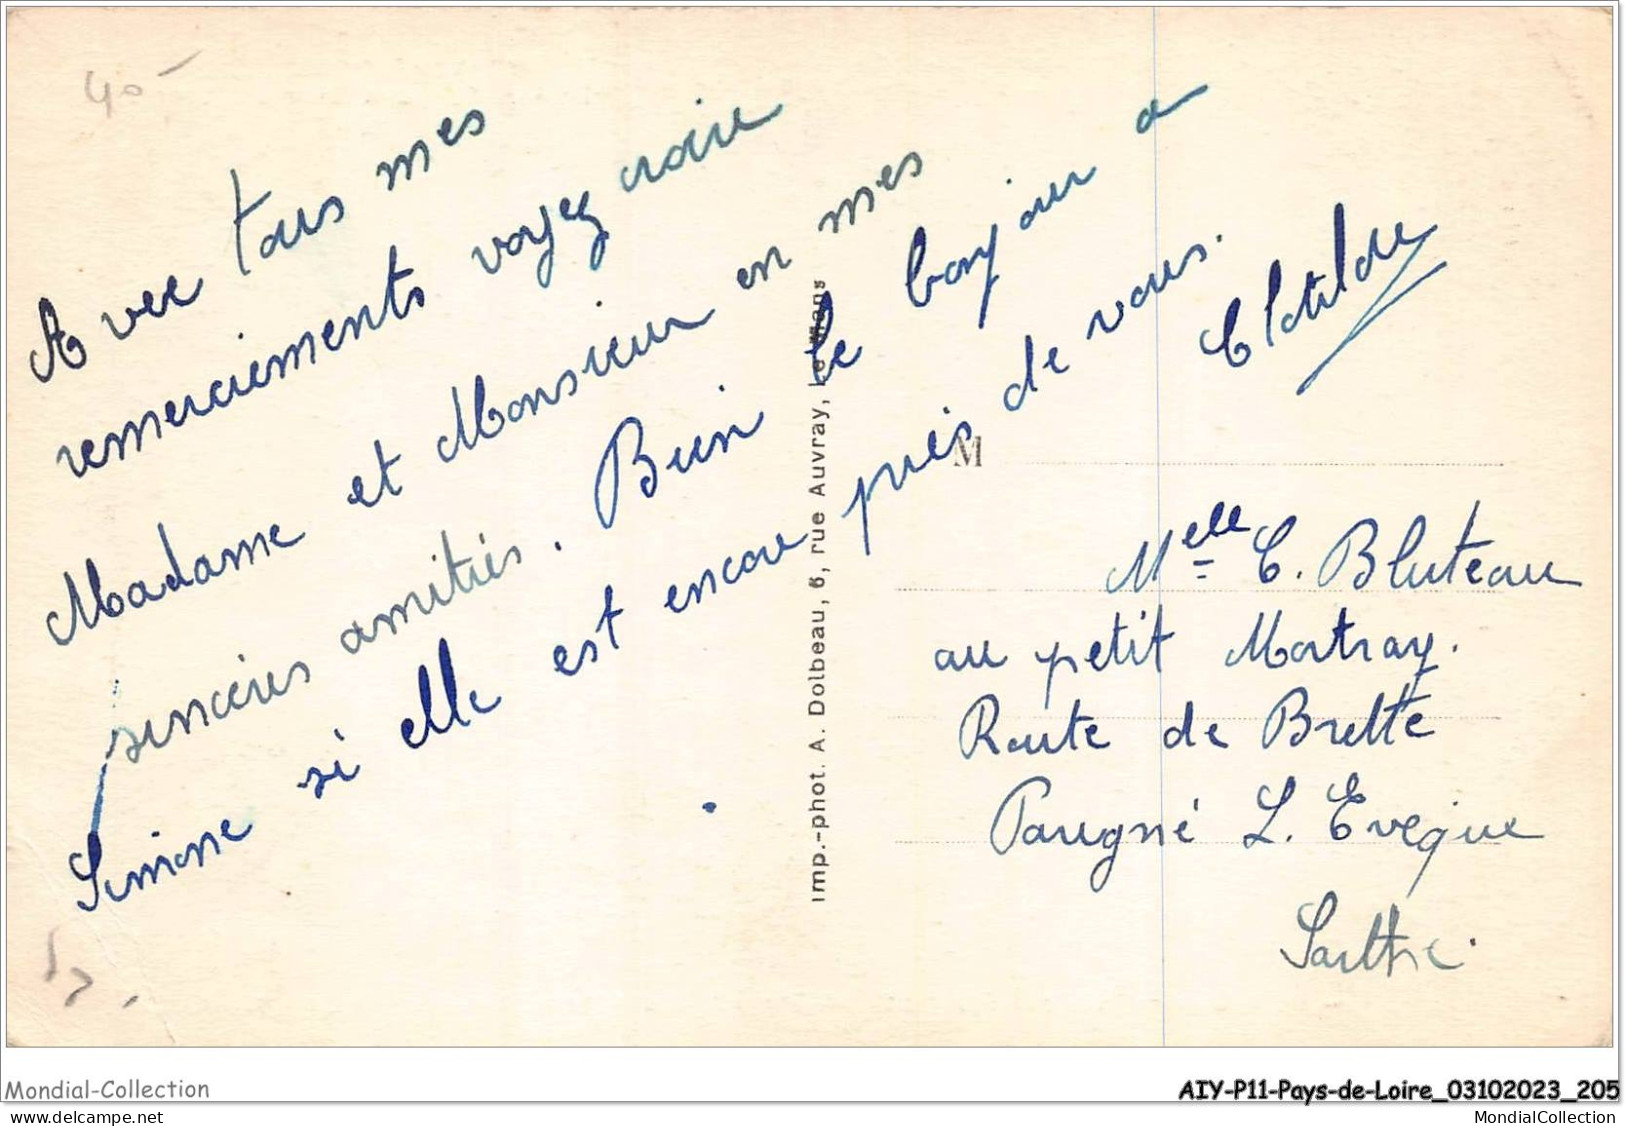 40-
Avec tous mes
remerciements voyez croire
Madame et Monsieur en mes
sincères amitiés. Bien le bonjour a
Simone si elle est encore près de vous.
Clotilde
Imp.-phot. A. Dolbeau, 6, rue Auvray, Le Mans
M
Melle C. Bluteau
au petit Mortray.
Route de Brette
Parigné L. Eveque
Sarthe.
Mondial-Collection
AIY-P11-Pays-de-Loire_03102023_205
www.delcampe.net
MondialCollection